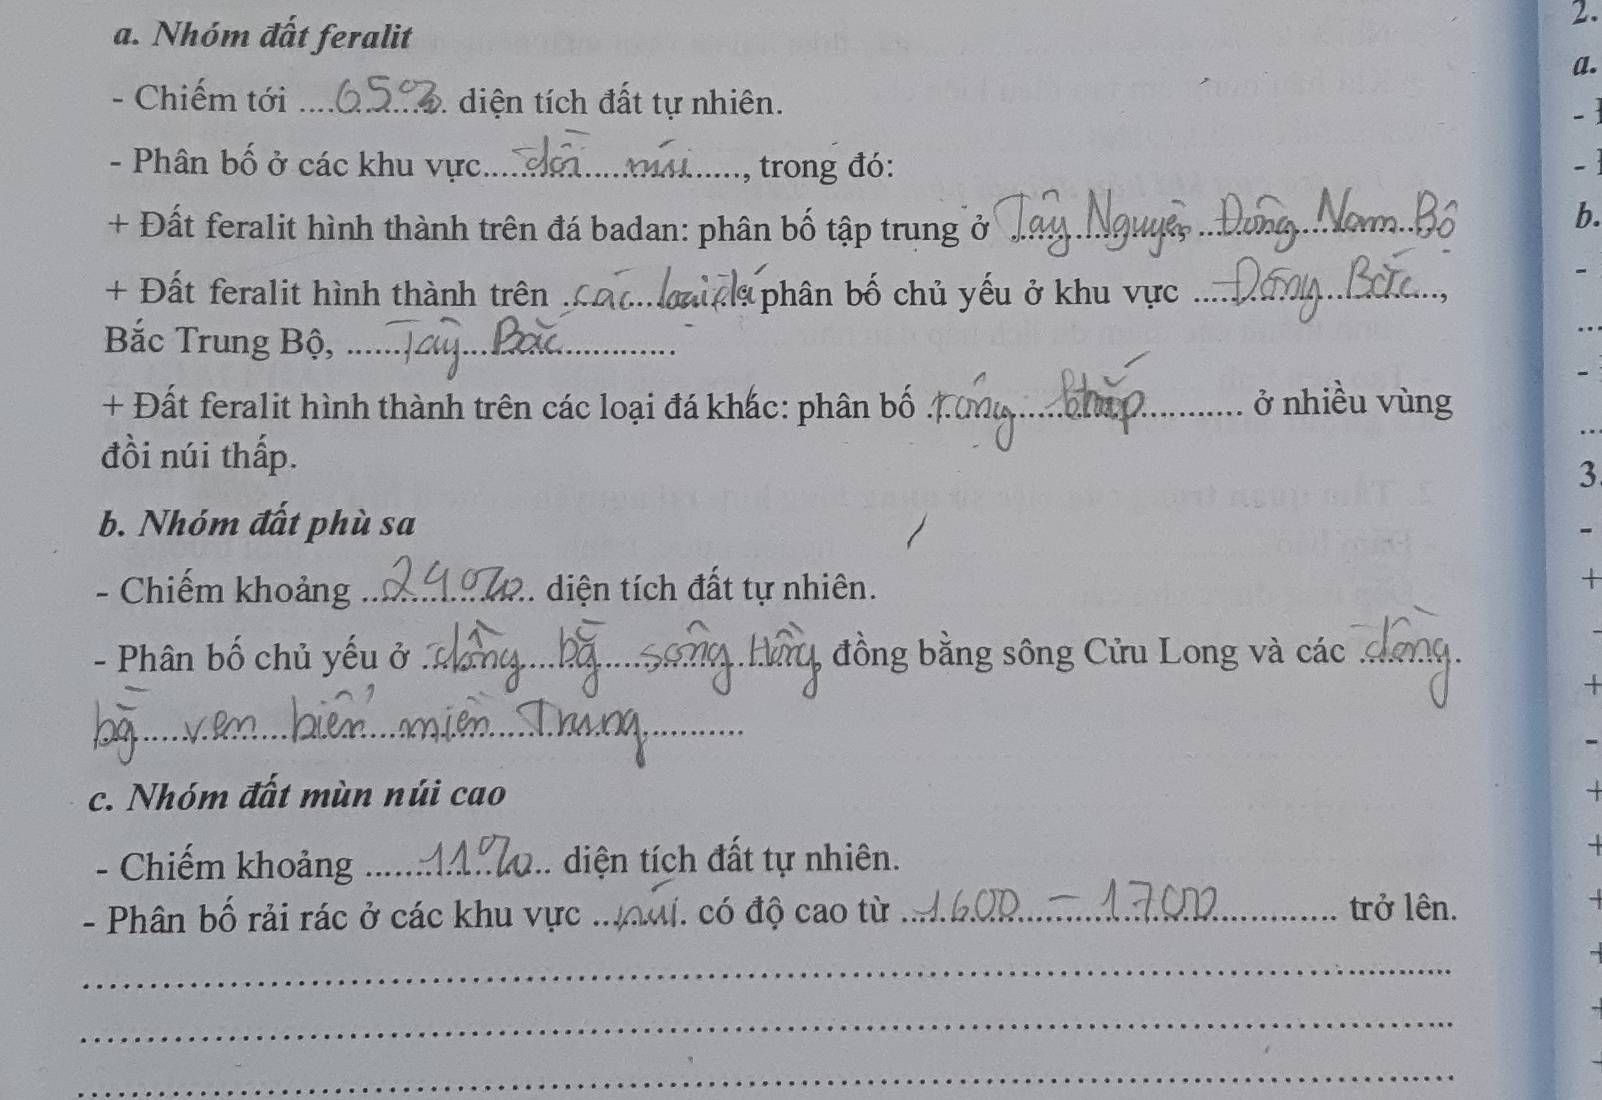 a. Nhóm đất feralit
- Chiếm tới ....65%.. diện tích đất tự nhiên.
- Phân bố ở các khu vực.....đồi.....núi......, trong đó:
+ Đất feralit hình thành trên đá badan: phân bố tập trung ở Tây Nguyên, Đông Nam Bộ
+ Đất feralit hình thành trên .các..loại đá phân bố chủ yếu ở khu vực ....Đông..Bắc...,
Bắc Trung Bộ, ......Tây...Bắc............
+ Đất feralit hình thành trên các loại đá khác: phân bố .rộng..... ............ ở nhiều vùng
đồi núi thấp.
b. Nhóm đất phù sa
- Chiếm khoảng ..24%.. diện tích đất tự nhiên.
- Phân bố chủ yếu ở .đồng...bg....sông.Hồng, đồng bằng sông Cửu Long và các .đồng.
bg.....ven...biển...miền....Trung..........
c. Nhóm đất mùn núi cao
- Chiếm khoảng ......11%.. diện tích đất tự nhiên.
- Phân bố rải rác ở các khu vực ...núi. có độ cao từ ..1600...–..1700............ trở lên.
2.
a.
-
-
b.
-
-
3.
-
+
-
+
-
+
+
+